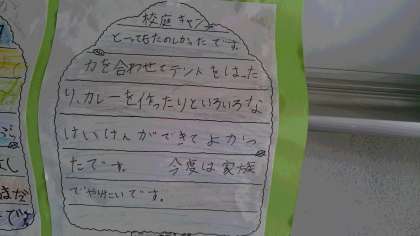 校庭キャンプ
とってもたのしかったです。
力を合わせてテントをはった
り、カレーを作ったりといろいろな
けいけんができてよかっ
たです。 今度は家族
でやりたいです。